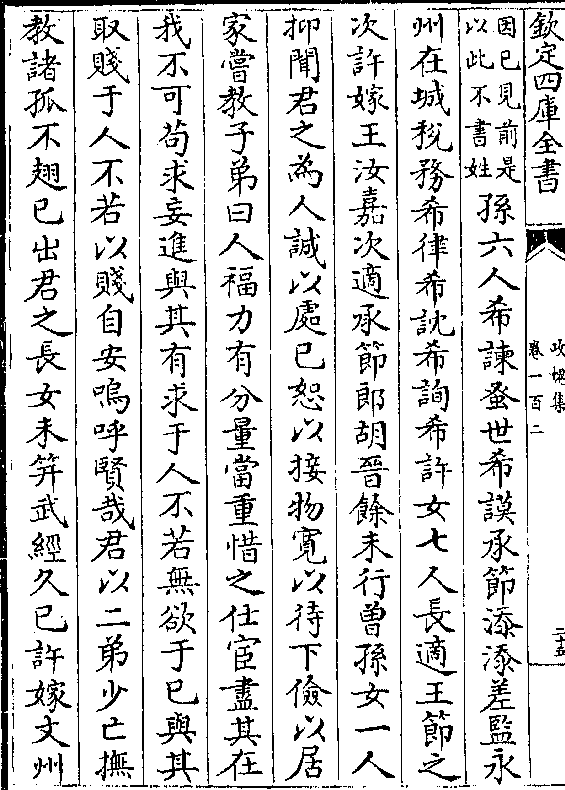 欽定四庫全書
攻媿集
卷一百二
二十五
因已見前是
以此不書姓
孫六人希諫蚤世希謨承節添添差監永
州在城稅務希律希詵希詢希許女七人長適王節之
次許嫁王汝嘉次適承節郎胡晉餘未行曾孫女一人
抑聞君之為人誠以處已恕以接物寛以待下儉以居
家嘗教子弟曰人福力有分量當重惜之仕宦盡其在
我不可苟求妄進與其有求于人不若無欲于已與其
取賤于人不若以賤自安嗚呼賢哉君以二弟少亡撫
教諸孤不翅已出君之長女未笄武經久已許嫁文州